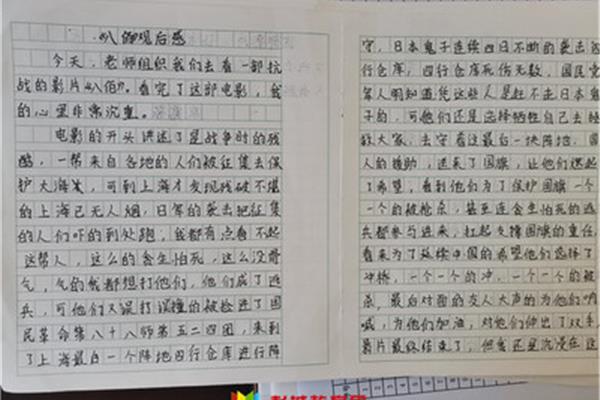 《八佰》观后感
今天，老师组织我们去看一部抗
战的影片《八佰》。看完了这部电影，我
的心里非常沉重。
电影的开头讲述了是战争时的残
酷，一帮来自各地的人们被征集去保
护大上海，可到上海才发现残破不堪
的上海已无人烟，日军的袭击把征集
的人们吓的到处跑，我都有点看不起
这帮人，这么的贪生怕死，这么没骨
气，气的我都想打他们，他们成了逃
兵，可他们又误打误撞的被抢进了国
民革命第八十八师第五二四团，来到
了上海最后一个阵地四行仓库进行阵
守，日本鬼子连续四日不断的袭击四
行仓库，四行仓库死伤无数，国民党
军人明知道凭这些人是赶不走日本鬼
子的，可他们还是选择牺牲自己去拯
救大家，去守着这最后一块阵地，国
人的援助，送来了国旗，让他们燃起
了希望，看到他们为了保护国旗一个
一个的被枪杀，甚至连贪生怕死的逃
兵都参与进来，扛起支撑国旗的重任，
看来为了延续中国的希望他们选择了
冲桥，一个一个的冲，一个一个的被
杀，最后对面的友人大声的为他们呐
喊，为他们加油，对他们伸出了双手，
影片最终结束了，但我还是沉浸在这